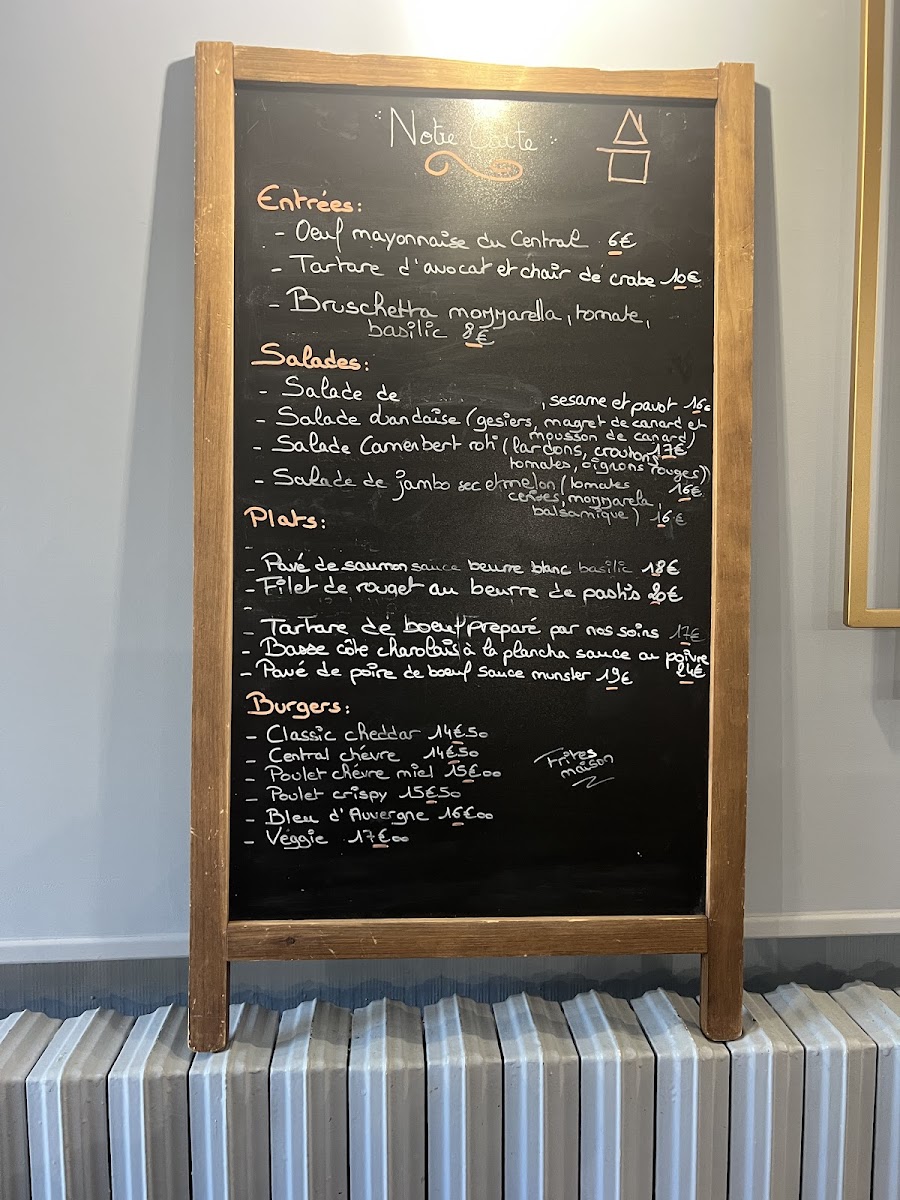 Notre Carte
Entrées:
- Oeuf mayonnaise du Central 6€
- Tartare d'avocat et chair de crabe 10€
- Bruschetta mozzarella, tomate,
basilic 8€
Salades:
- Salade de , sesame et pavot 16€
- Salade landaise (gesiers, magret de canard et
mousson de canard)
17€
- Salade Camembert roti (lardons, croutons
tomates, oignons rouges)
16€
- Salade de jambo sec et melon (tomates
cerises, mozzarela,
balsamique) 16€
Plats:
-
- Pavé de saumon sauce beurre blanc basilic 18€
- Filet de rouget au beurre de pastis 20€
-
- Tartare de boeuf préparé par nos soins 17€
- Basse côte charolais à la plancha sauce au poivre
24€
- Pavé de poire de boeuf sauce munster 19€
Burgers:
- Classic cheddar 14€50
- Central chévre 14€50
- Poulet chévre miel 15€00
- Poulet crispy 15€50
- Bleu d'Auvergne 16€00
- Véggie 17€00
Frites
maison